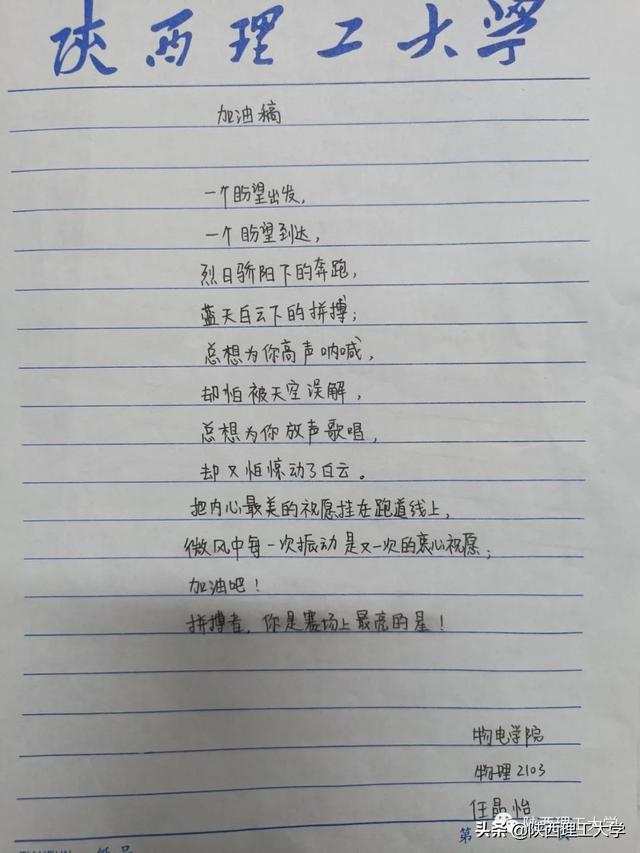 陕西理工大学
加油稿
一个盼望出发,
一个盼望到达,
烈日骄阳下的奔跑,
蓝天白云下的拼搏;
总想为你高声呐喊,
却怕被天空误解,
总想为你放声歌唱,
却又怕惊动了白云。
把内心最美的祝愿挂在跑道线上,
微风中每一次振动是又一次的衷心祝愿;
加油吧!
拼搏者,你是赛场上最亮的星!
物电学院
物理2103
任晶怡
陕西理工大学
第
头条@陕西理工大学